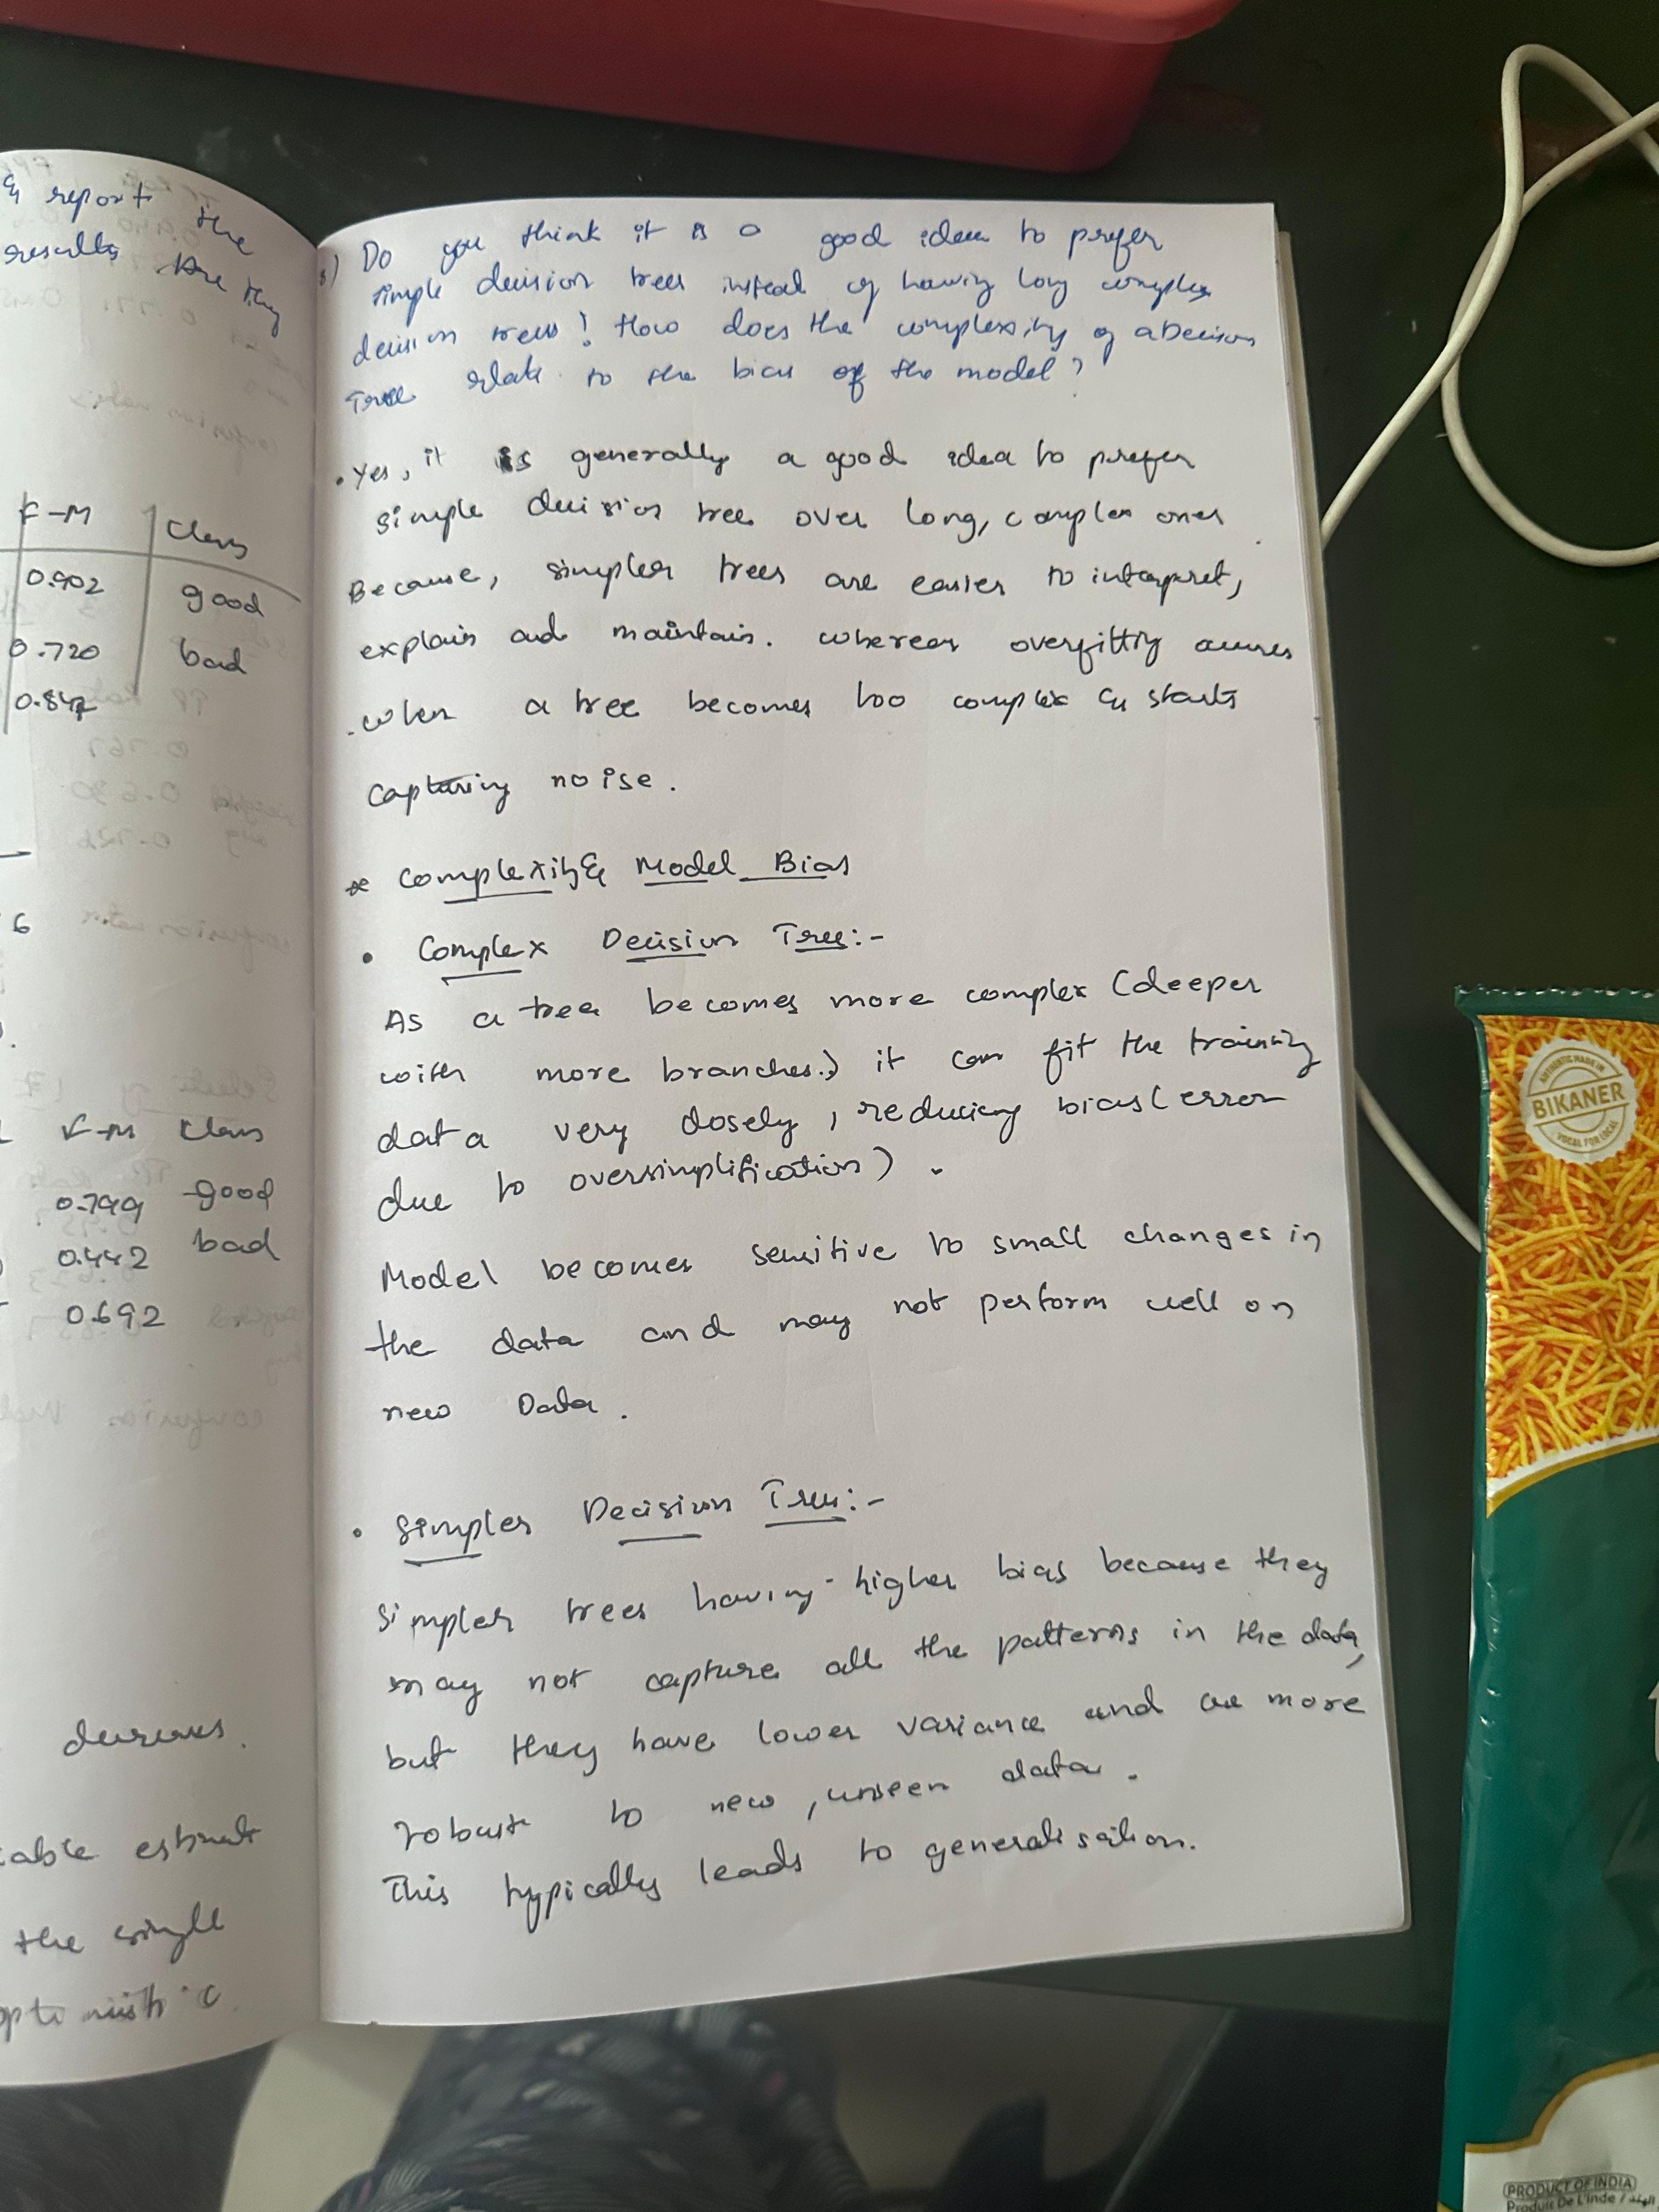 & report the
results. Are they
F-M Class
0.902 good
0.720 bad
0.847
6
F-M Class
0.799 good
0.442 bad
0.692
decreases.
estimate
the single
8) Do you think it is a good idea to prefer
simple decision trees instead of having long complex
decision trees? How does the complexity of a Decision
Tree relate to the bias of the model?
• Yes, it is generally a good idea to prefer
simple decision tree over long, complex ones
Because, simpler trees are easier to interpret,
explain and maintain. whereas overfitting occurs
when a tree becomes too complex & starts
capturing noise.
* Complexity & Model Bias
• Complex Decision Tree:-
As a tree becomes more complex (deeper
with more branches.) it can fit the training
data very closely, reducing bias (error
due to oversimplification).
Model becomes sensitive to small changes in
the data and may not perform well on
new Data.
• Simpler Decision Tree:-
Simpler trees having higher bias because they
may not capture all the patterns in the data,
but they have lower variance and are more
robust to new, unseen data.
This typically leads to generalisation.
AUTHENTIC MADE IN
BIKANER
VOCAL FOR LOCAL
PRODUCT OF INDIA
Produis De L'inde /